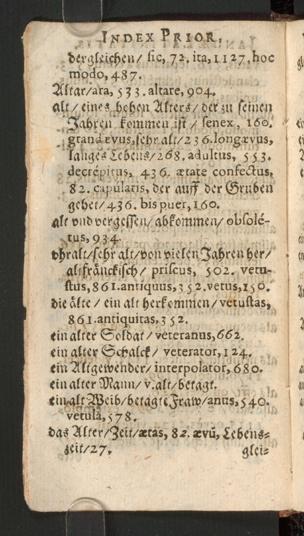 INDEX PRIOR,
dergleichen/ sic, 72, ita, 1127, hoc
modo, 487.
Altar/ara, 533. altare, 904.
alt/ eines hohen Alters/ der zu seinen
Jahren kommen ist/ senex, 160.
grandævus, sehr alt/236. longævus,
langes Lebens/268. adultus, 553.
decrépitus, 436. ætate confectus,
82. capularis, der auff der Gruben
gehet/436. bis puer, 160.
alt vnd vergessen/abkommen/ obsolé-
tus, 934.
vhralt/sehr alt/von vielen Jahren her/
altfränckisch/ priscus, 502. vetu-
stus, 861. antiquus, 352. vetus, 150.
die älte/ ein alt herkommen/ vetustas,
861. antiquitas, 352.
ein alter Soldat/ veteranus, 662.
ein alter Schalck/ veterator, 124.
ein Altgewender/ interpolator, 680.
ein alter Mann/ v. alt/ betagt.
ein alt Weib/ betagte Fraw/anus, 540.
vetula, 578.
das Alter/Zeit/ætas, 82. ævū, Lebens-
zeit/27.
glei-